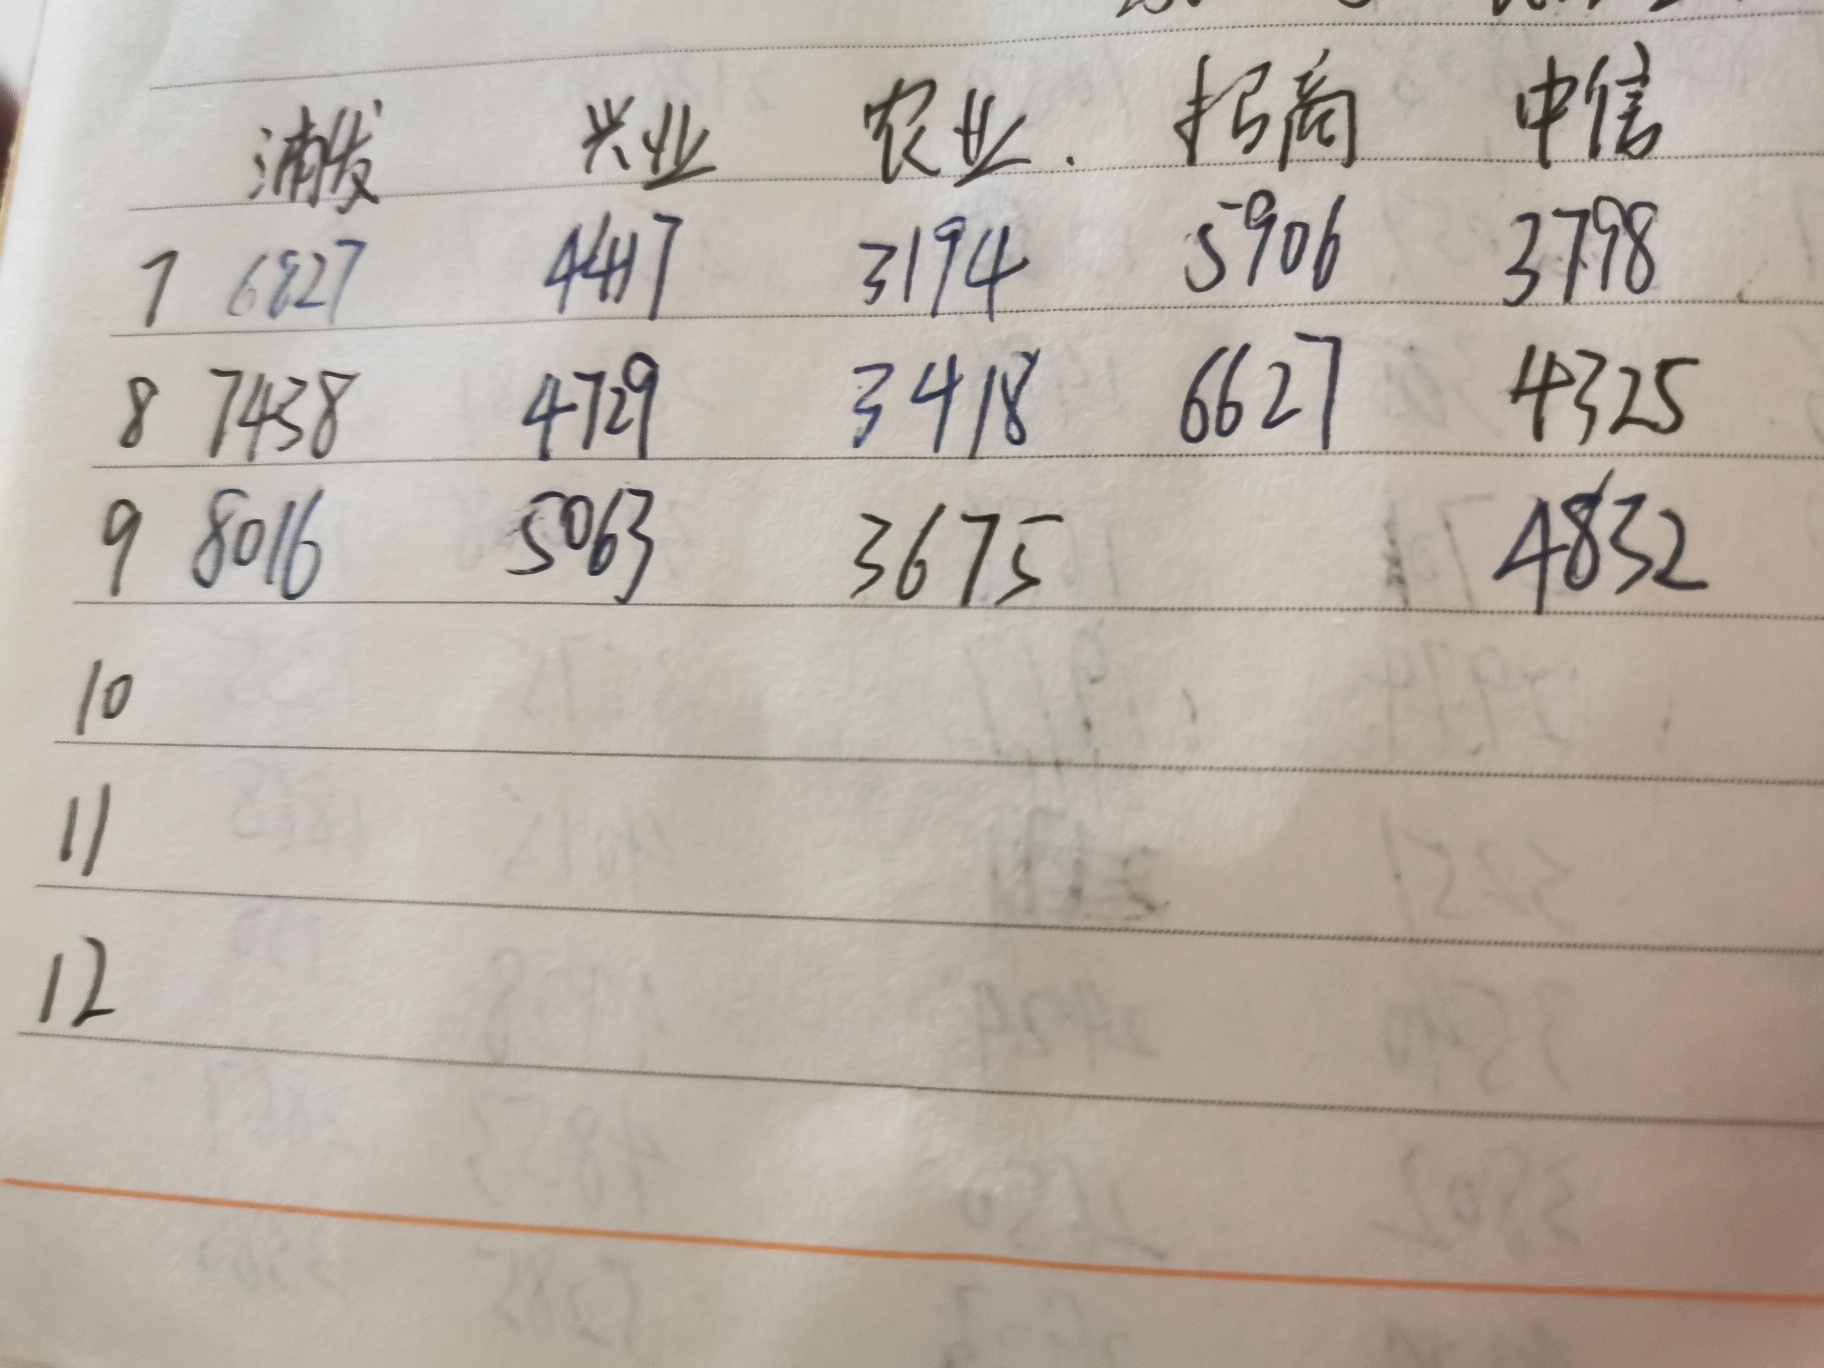 浦发 兴业 农业. 招商 中信
7 6827 4417 3194 5906 3798
8 7438 4729 3418 6627 4325
9 8016 5063 3675 4832
10
11
12